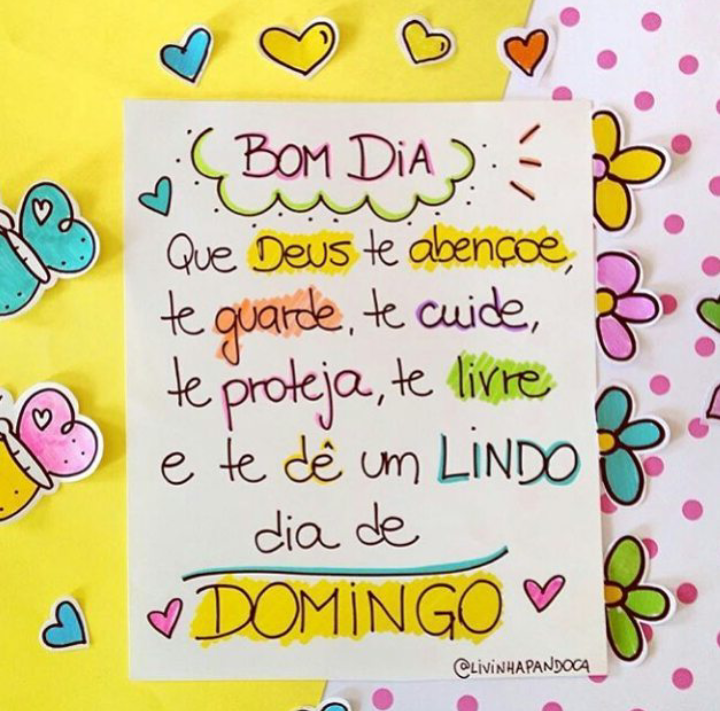 BOM DIA
Que DEUS te abençoe,
te guarde, te cuide,
te proteja, te livre
e te dê um LINDO
dia de
DOMINGO
@LIVINHAPANDOCA